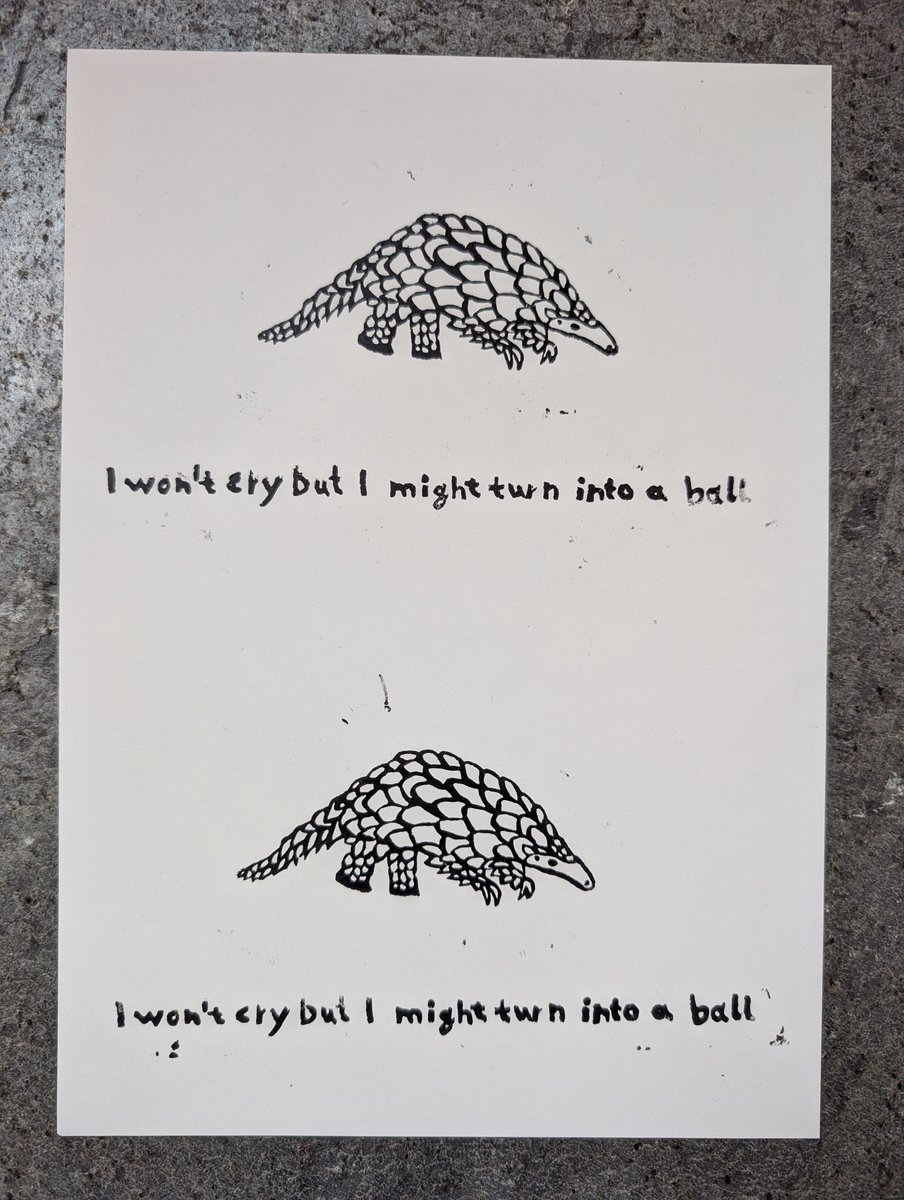 I won't cry but I might turn into a ball
I won't cry but I might turn into a ball